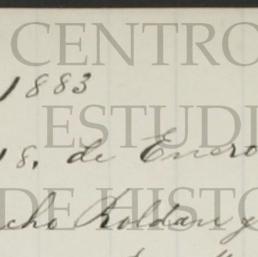 CENTRO
1883
ESTUDI
18, de Enero
DE HISTO
cho Roldan y